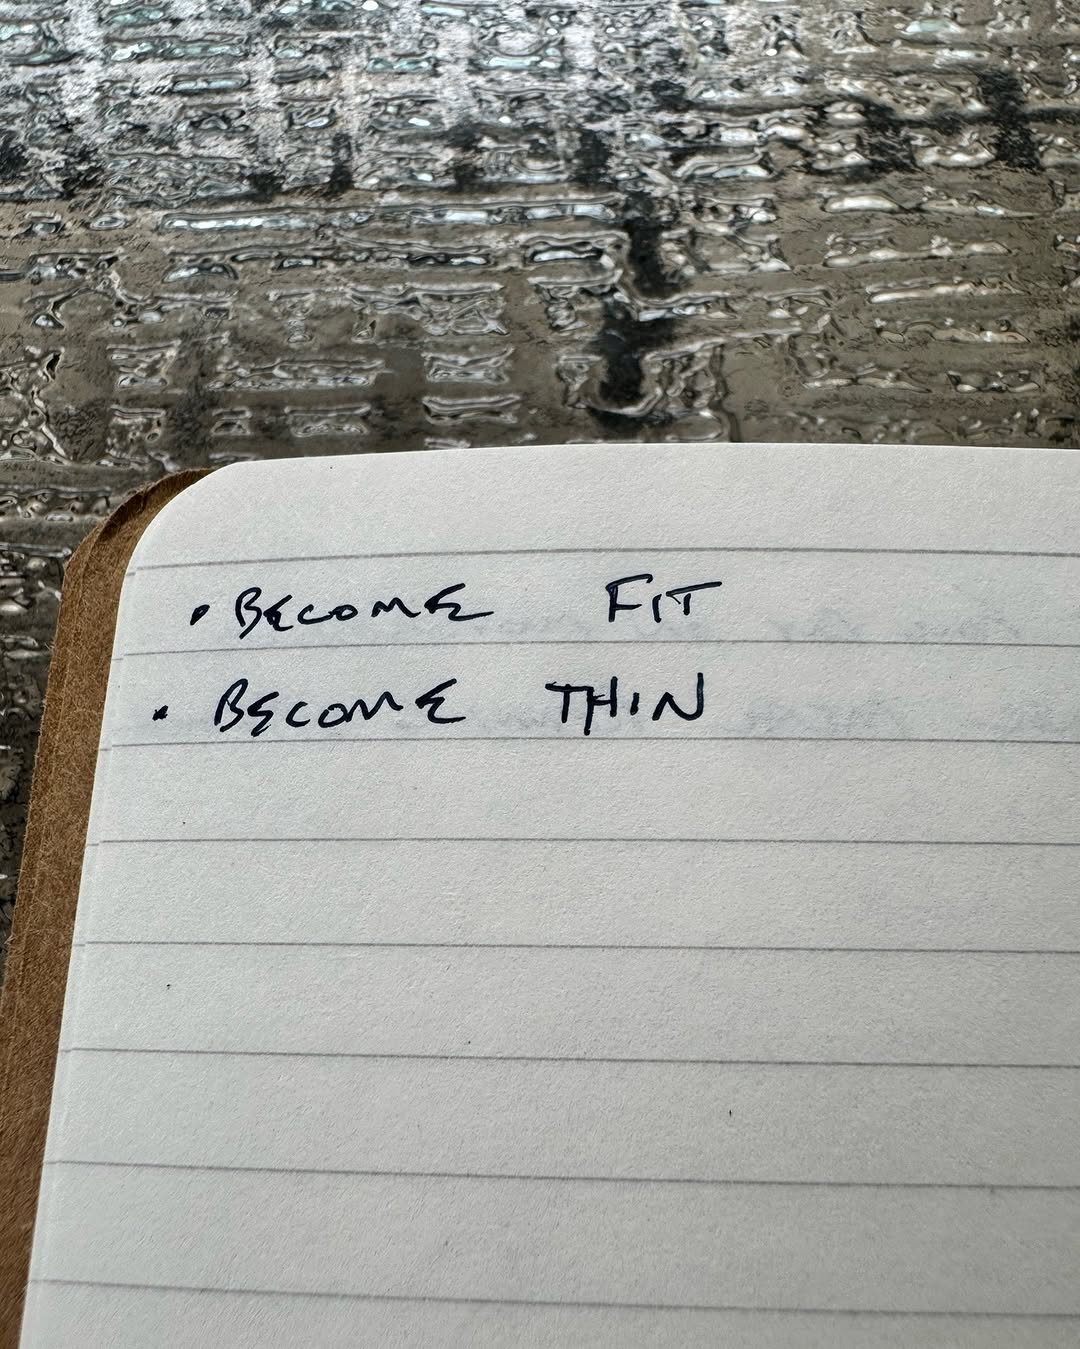 • BECOME FIT
• BECOME THIN